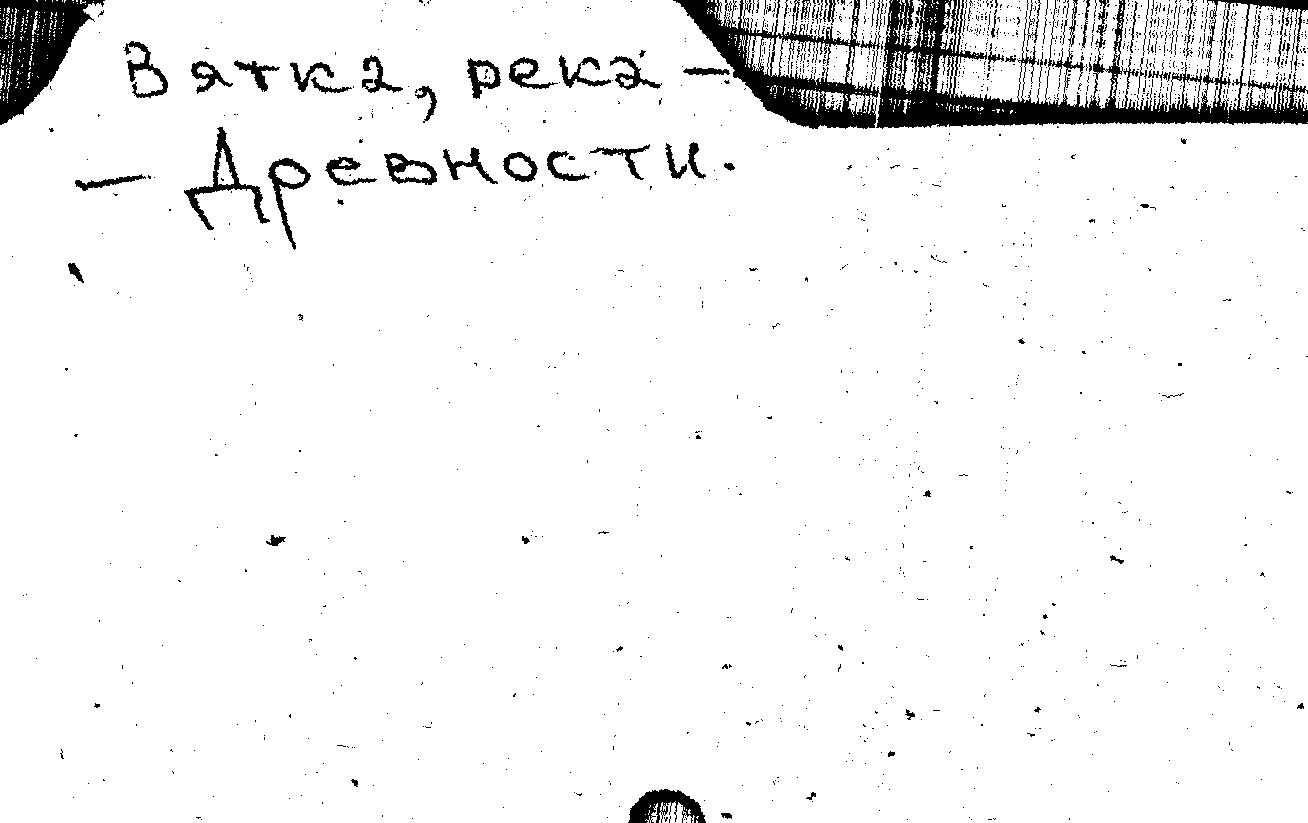 Вятка, река —
— Древности.